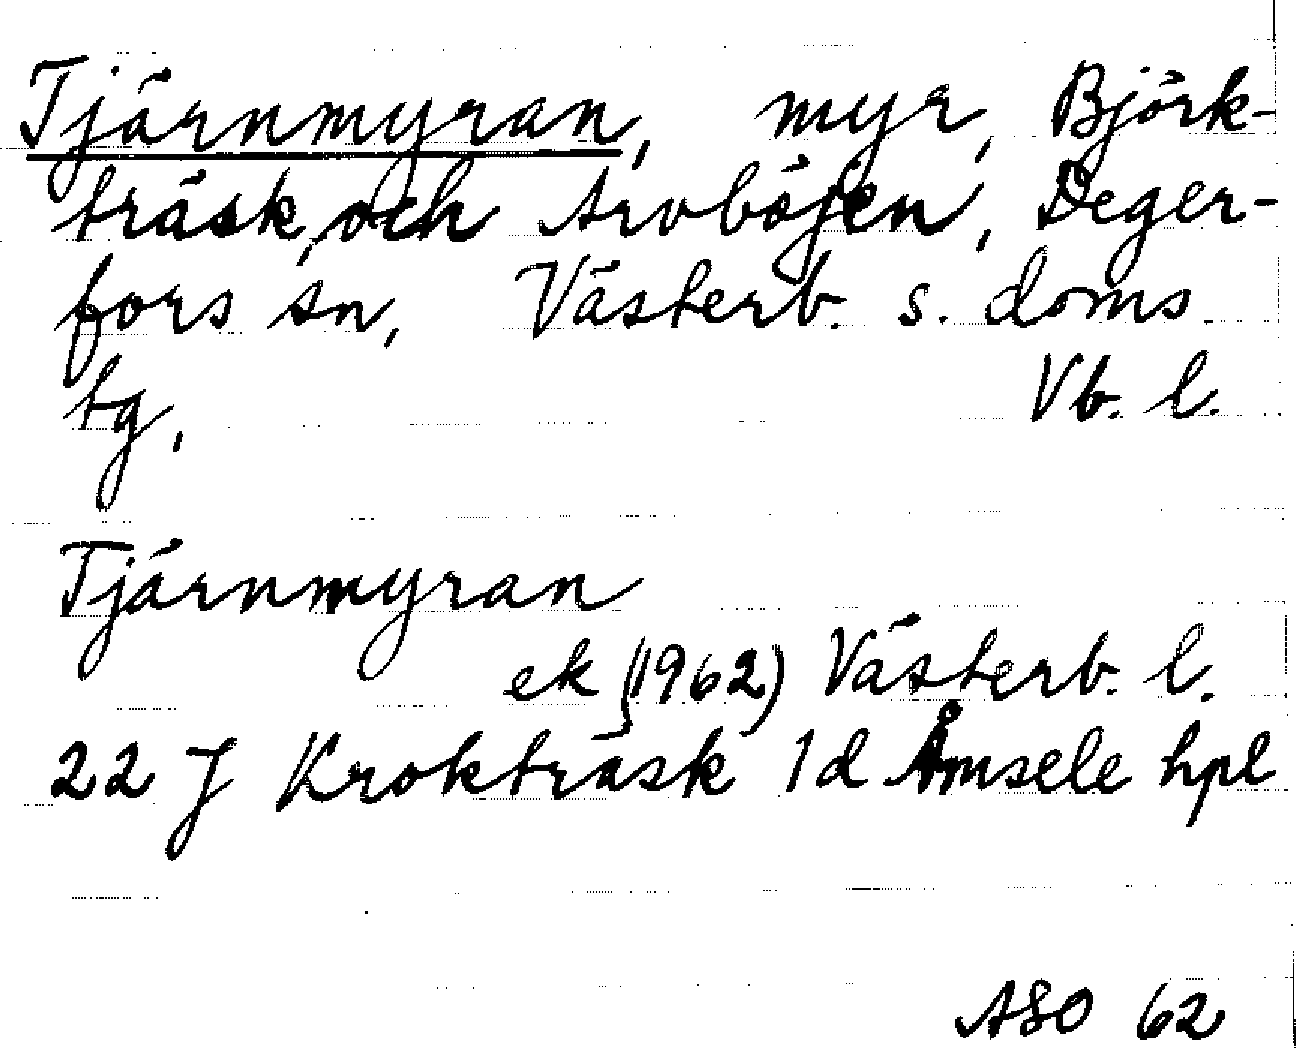 Tjärnmyran, myr, Björk-
träsk, och Arvböjen, Deger-
fors sn, Västerb. s. doms
tg, Vb. l.
Tjärnmyran
ek (1962) Västerb. l.
22 J Krokträsk 1d Åmsele hpl
ASO 62